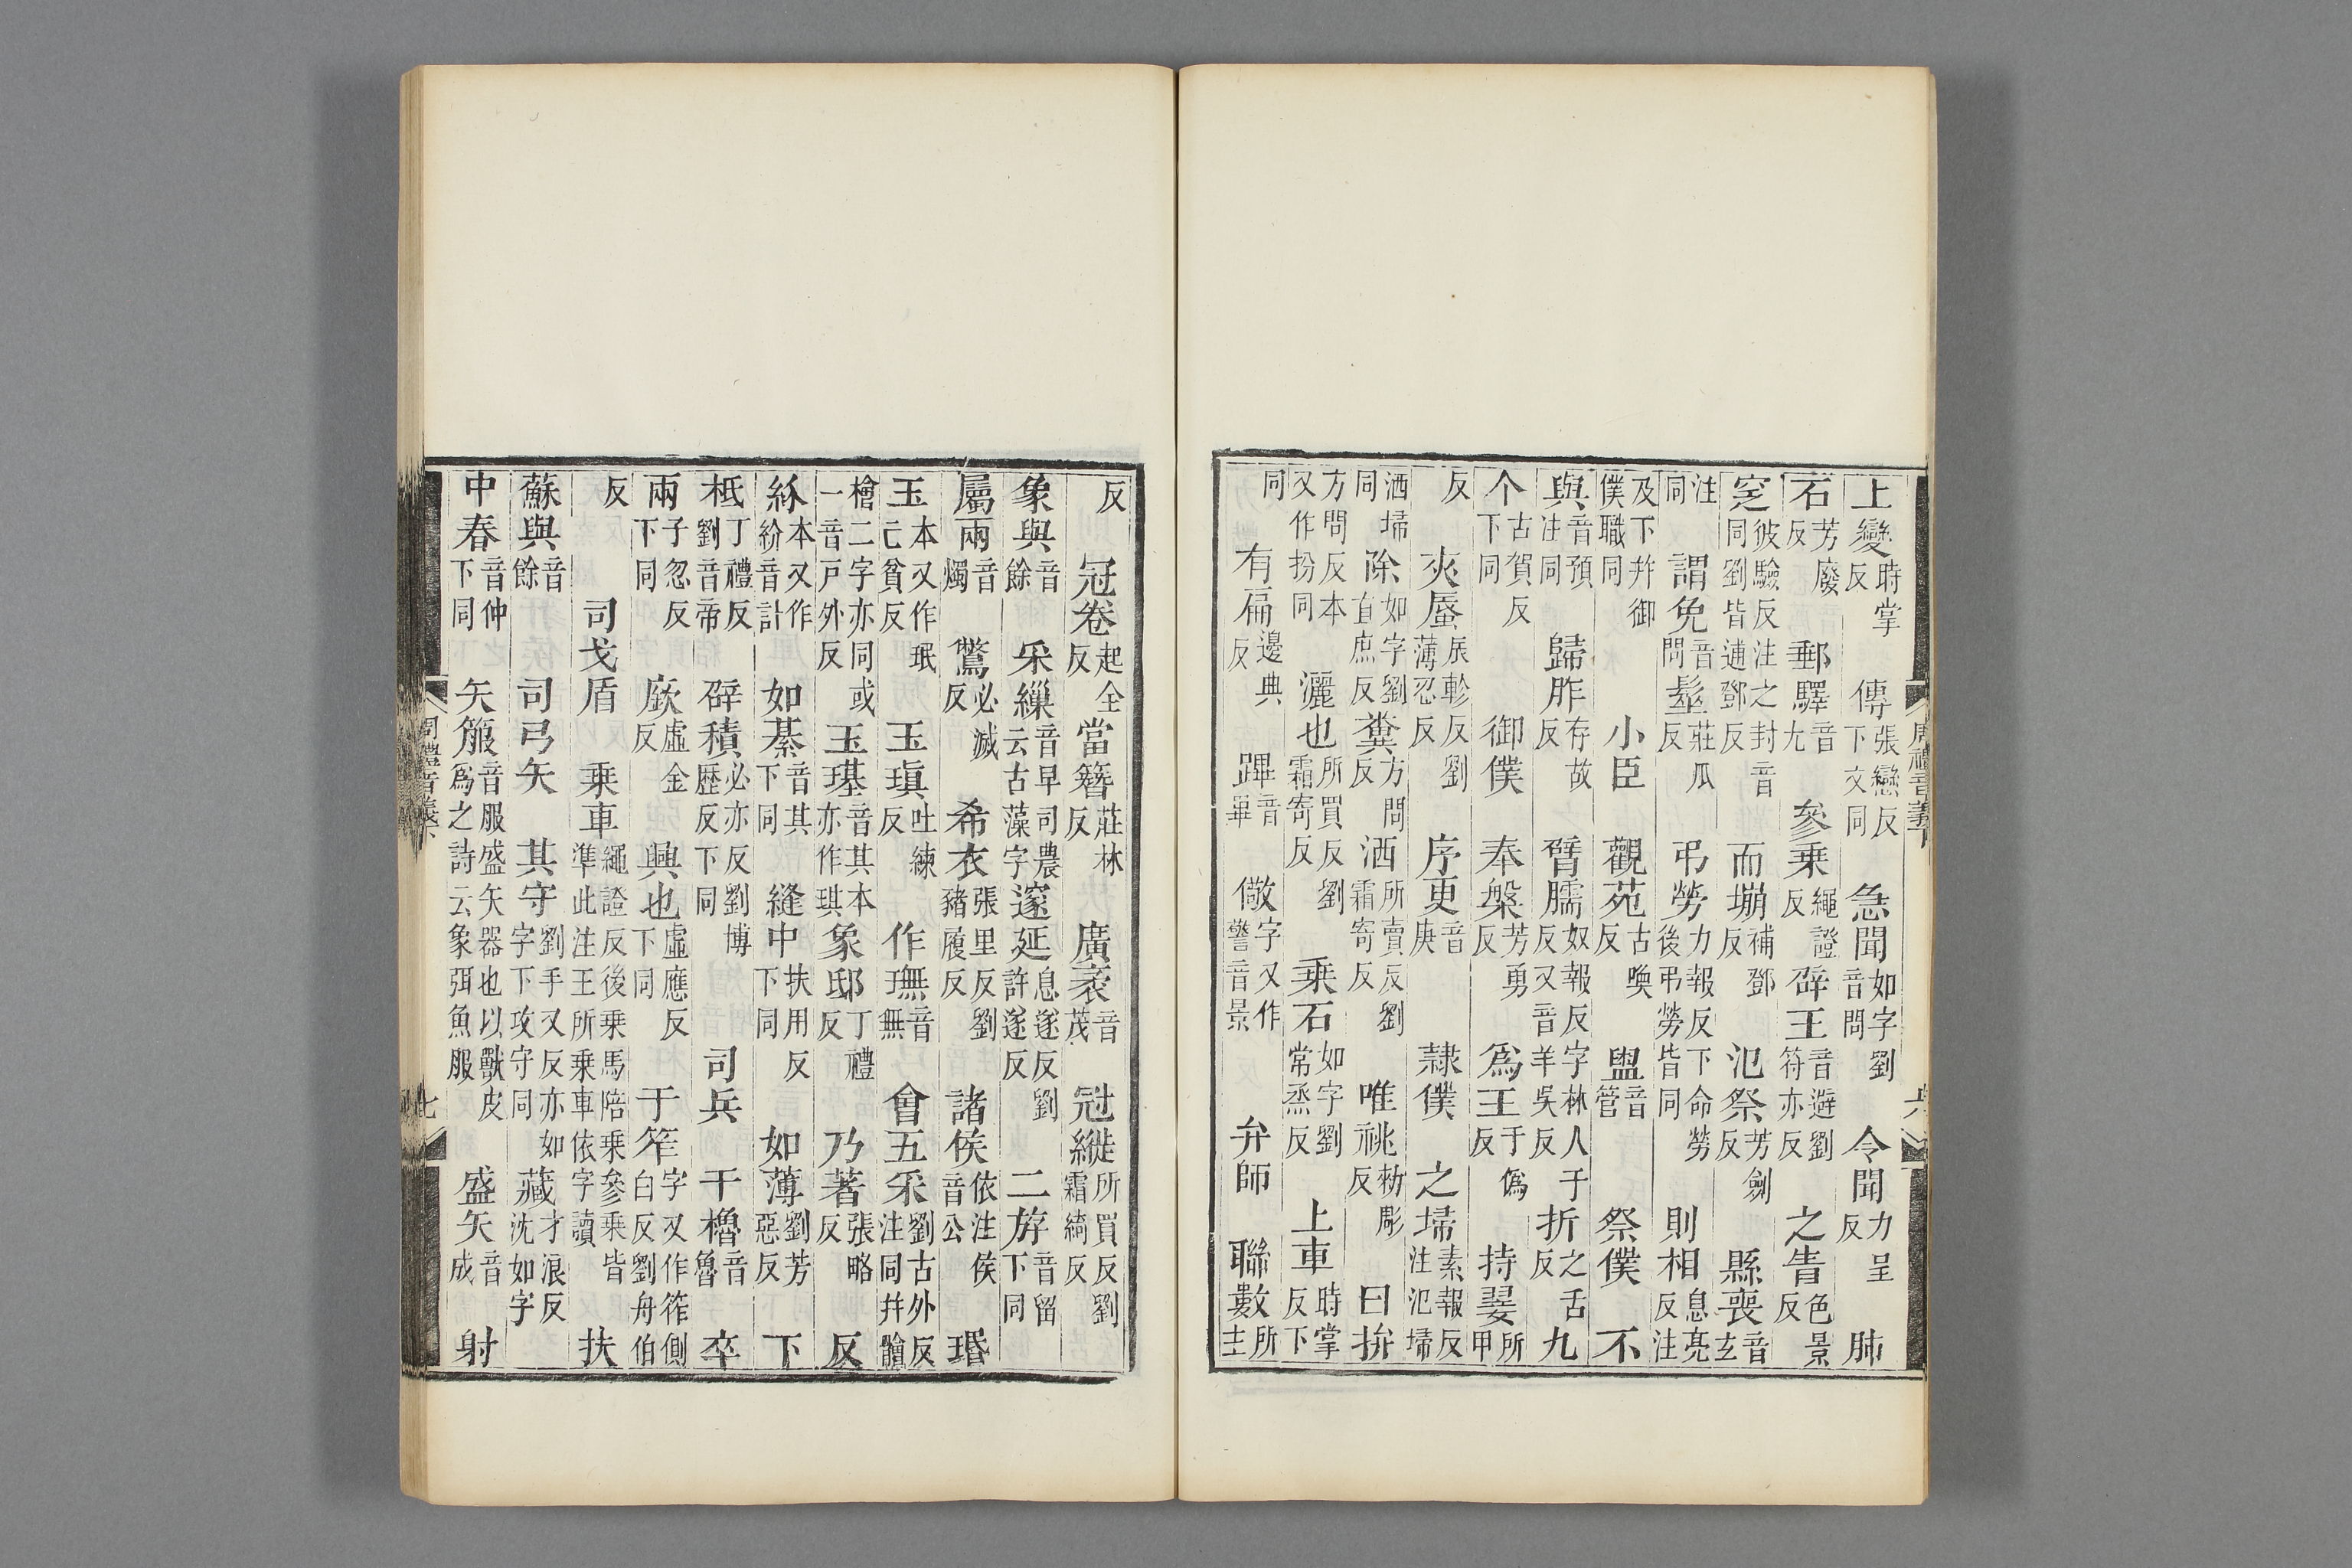 上變時掌反 傳張戀反下文同 急聞如字劉音問 令聞力呈反 肺
石芳廢反 郵驛音尤 參乘繩證反 辟王音避劉符亦反 之眚色景反
窆彼驗反注之封音同劉皆逋鄧反 而塴補鄧反 氾祭芳劒反 縣喪音玄
注同 謂免音問 髽莊瓜反 弔勞力報反下命勞後弔勞皆同 則相息亮反注
及下幷御僕職同 小臣 觀苑古喚反 盥音管 祭僕 不
與音預注同 歸胙存故反 臂臑奴報反字林人于反又音羊吳反 折之舌反 九
个古賀反下同 御僕 奉槃芳勇反 爲王于僞反 持翣所甲
反 夾蜃辰軫反劉薄忍反 序更音庚 隷僕 之埽素報反注氾埽
洒埽同 除如字劉直庶反 糞方問反 洒所賣反劉霜寄反 唯祧勑彫反 曰拚
方問反本又作扮同 灑也所買反劉霜寄反 乘石如字劉常烝反 上車時掌反下
同 有扁邊典反 蹕音畢 儆字又作警音景 弁師 聯數所主
周禮音義下
反 冠卷起全反 當簪莊林反 廣袤音茂 冠縰所買反劉霜綺反
象與音餘 采繅音早司農云古藻字 邃延息遂反劉許遂反 二斿音留下同
屬兩音燭 鷩必滅反 希衣張里反劉豬履反 諸侯依注侯音公 瑉
玉本又作珉亡貧反 玉瑱吐練反 作璑音無 會五采劉古外反注同幷䯤
檜二字亦同或一音戶外反 玉璂音其本亦作琪 象邸丁禮反 乃著張略反
紒本又作紛音計 如綦音其下同 縫中扶用反下同 如薄劉芳惡反 下
柢丁禮反劉音帝 辟積必亦反劉博歷反下同 司兵 干櫓音魯 卒
兩子忽反下同 廞虛金反 興也虛應反下同 于笮字又作筰側白反劉舟伯
反 司戈盾 乘車繩證反後乘馬陪乘參乘皆準此注王所乘車依字讀 扶
蘇與音餘 司弓矢 其守劉手又反亦如字下攻守同 藏才浪反沈如字
中春音仲下同 矢箙音服盛矢器也以獸皮爲之詩云象弭魚服 盛矢音成 射
周禮音義下 七